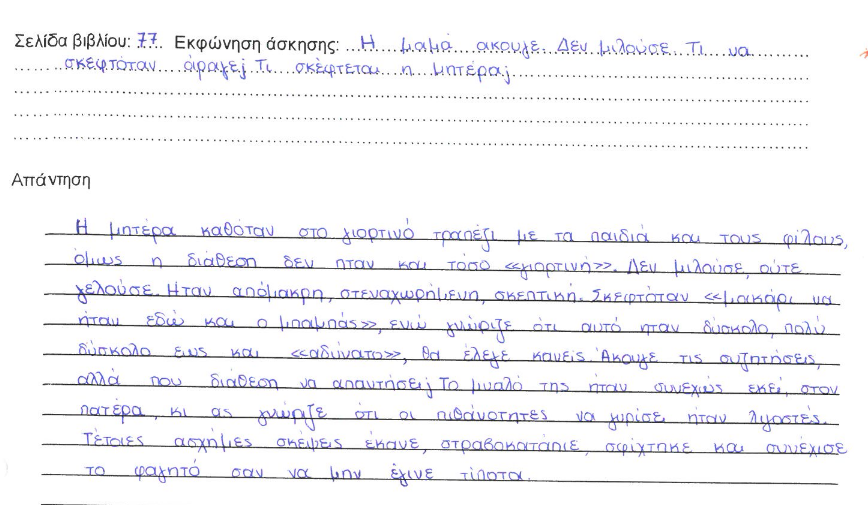 Σελίδα βιβλίου: 77. Εκφώνηση άσκησης: Η μαμά άκουγε. Δεν μιλούσε. Τι να
σκεφτόταν άραγε; Τι σκέφτεται η μητέρα;
Απάντηση
Η μητέρα καθόταν στο γιορτινό τραπέζι με τα παιδιά και τους φίλους,
όμως η διάθεση δεν ήταν και τόσο «γιορτινή». Δεν μιλούσε, ούτε
γελούσε. Ήταν απόμακρη, στεναχωρημένη, σκεπτική. Σκεφτόταν «μακάρι να
ήταν εδώ και ο μπαμπάς», ενώ γνώριζε ότι αυτό ήταν δύσκολο, πολύ
δύσκολο έως και «αδύνατο», θα έλεγε κανείς. Άκουγε τις συζητήσεις,
αλλά που διάθεση να απαντήσει; Το μυαλό της ήταν συνεχώς εκεί, στον
πατέρα, κι ας γνώριζε ότι οι πιθανότητες να γυρίσει ήταν λιγοστές.
Τέτοιες ασχήμιες σκέψεις έκανε, στραβοκατάπιε, σφίχτηκε και συνέχισε
το φαγητό σαν να μην έγινε τίποτα.